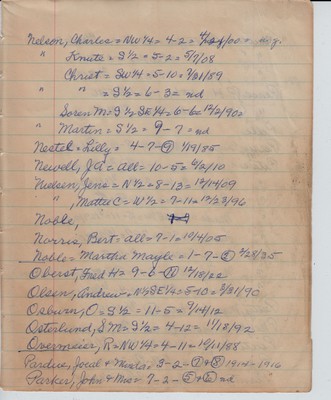 Nelson, Charles = NW 1/4 = 4-2 = 4/24/00 =
" Knute = S 1/2 = 5-2 = 5/7/08
Christ = SW 1/4 = 5-10 = 7/21/89
" " = S 1/2 = 6-3 = nd
Soren M = S 1/2 SE 1/4 = 6-6 = 12/2/90
" Martin = S 1/2 = 9-7 = nd
Nestel = Lilly = 4-7-9 1/19/85
Newell, JA = all = 10-5 = 6/2/10
Nielsen, Jens = N 1/2 = 8-13 = 12/14/09
" , Mattie C = W 1/2 = 7-11 = 12/23/96
Noble,
Norris, Bert = all = 7-1 = 10/4/05
Noble = Martha Mayble = 1-7- 2/28/25
Oberst, Fred H = 9-6- 12/18/22
Olsen, Andrew = N 1/2 SE 1/4 = 5-10 = 3/21/90
Osburn, O = S 1/2 = 11-5 = 9/14/12
Osterlund, SM = S 1/2 = 4-12 = 11/18/92
Overmeier, R = NW 1/4 = 4-11 = 10/21/88
Pardue, Joeal & = 3-2- 1914-1916
Parker, John & Mrs = 7-2- nd